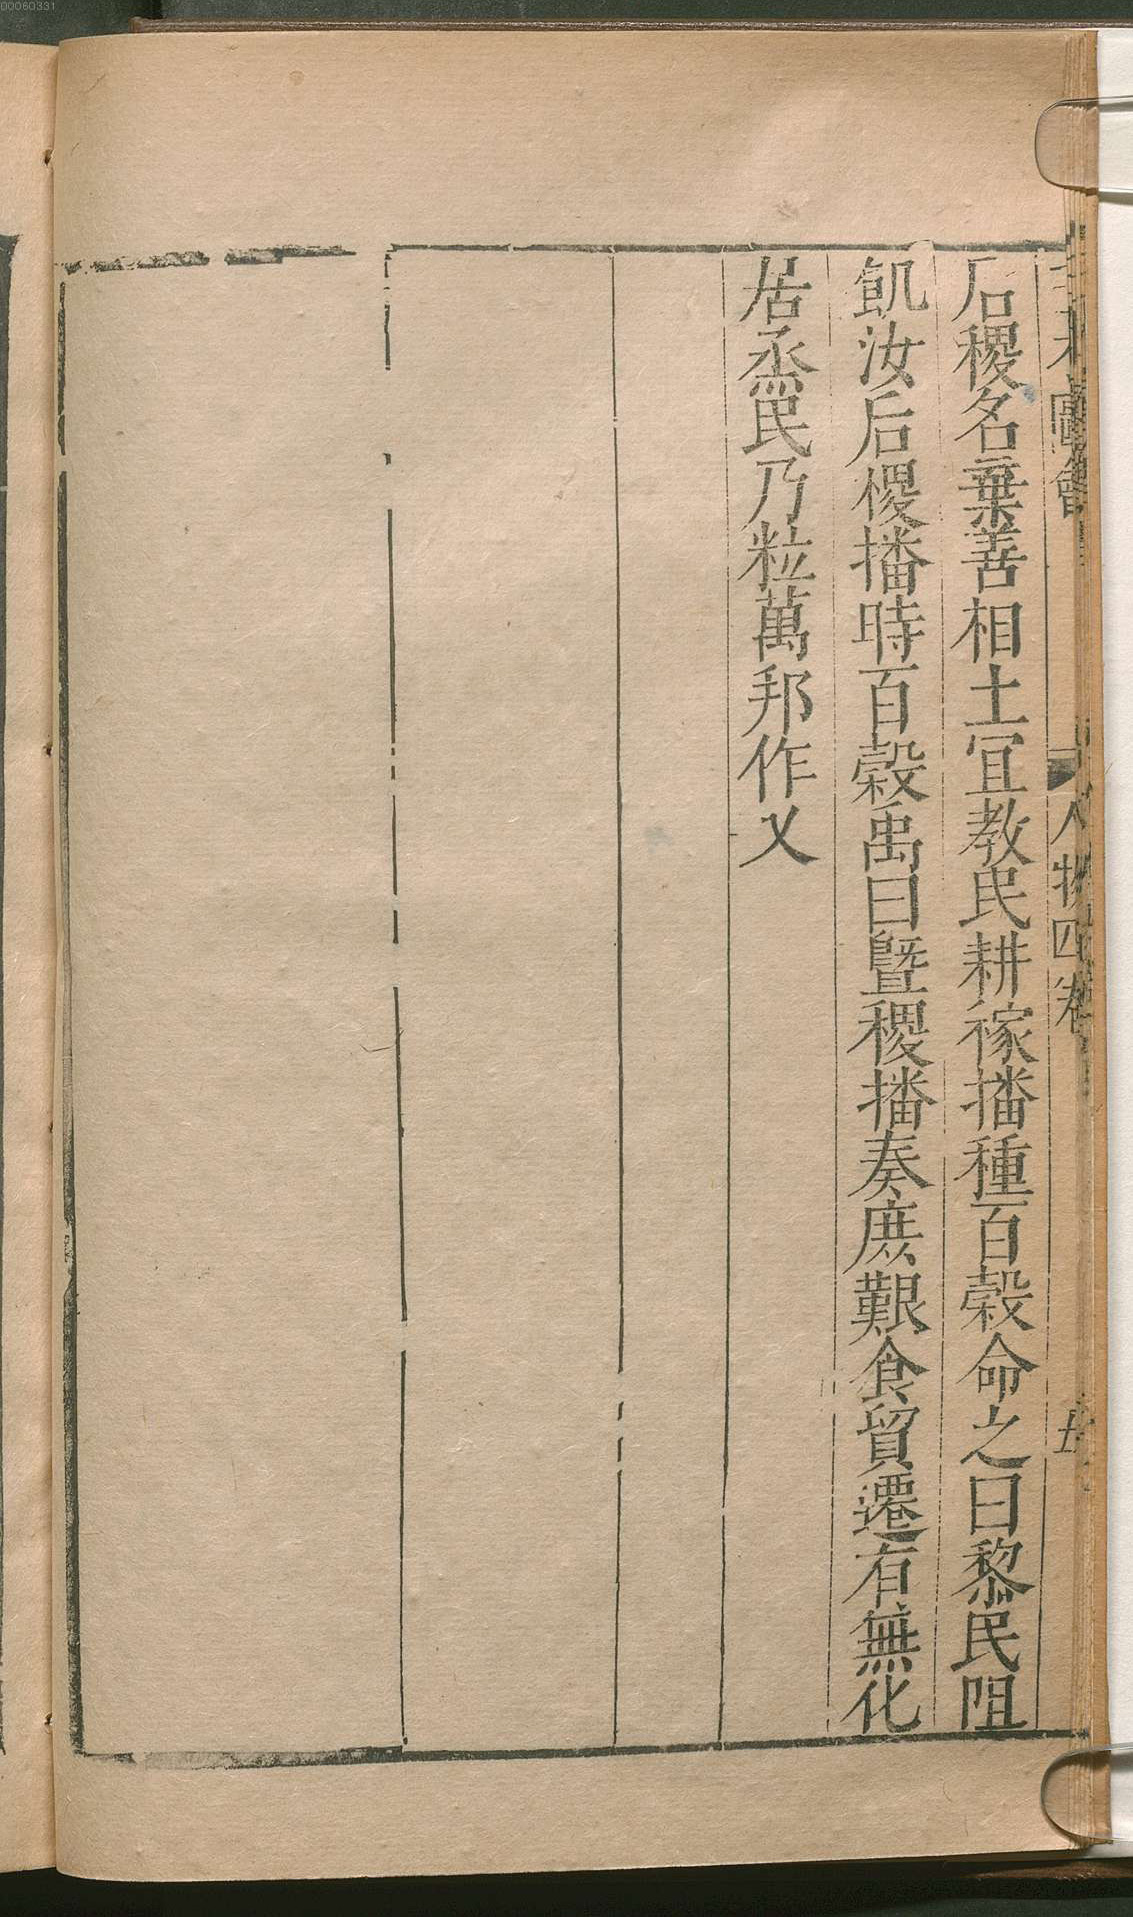 00060331
圖會
人物四卷
后稷名棄善相土宜教民耕稼播種百穀命之曰黎民阻
飢汝后稷播時百穀禹曰暨稷播奏庶艱食貿遷有無化
居烝民乃粒萬邦作乂